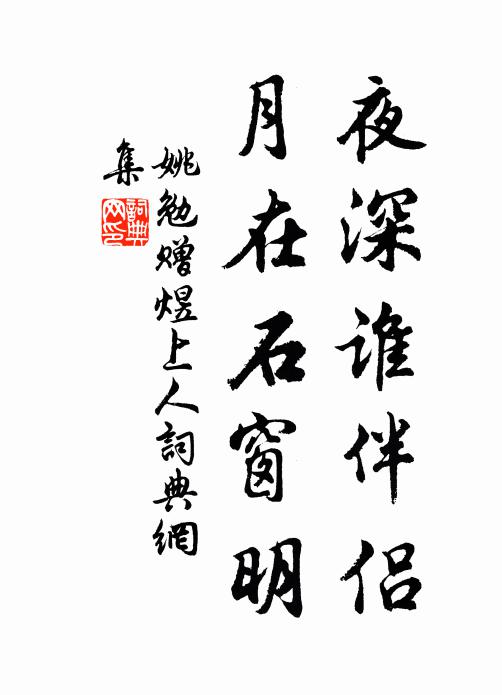 夜深谁伴侣
月在石窗明
姚勉赠煜上人詞典網
集
詞典网印